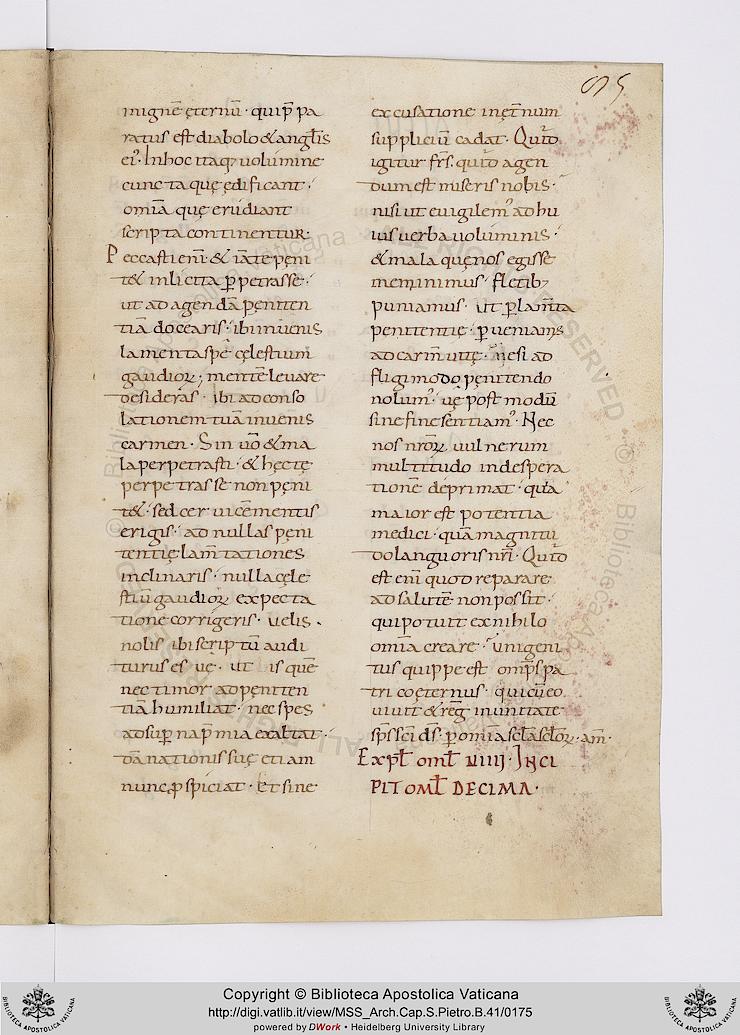 95
inignē ęternū · quip̄ pa
ratus est diabolo & anglis
ei᾽. Inhoc itaq; uolumine
cuncta quę ędificant ·
omīa quę erudiant
scripta continentur·
Peccasti enī · & iāte pęni
t& inlicita p̲petrasse ·
ut ad agendā pęniten
tiā docearis · ibi inuenis
lamenta spē cęlestium
gaudioꝝ ; mentē leuare
desideras · ibi ad conso
lationem tuā inuenis
carmen · Sin uō & ma
la perpetrasti · & hęc tę
perpetrasse non pęni
t& · sed cer uicē mentis
erigis · ad nullas pęni
tentię lam̄tationes
inclinaris · nulla cęle
stiū gaudioꝝ expecta
tione corrigeris · uelis ·
nolis ibi scriptū audi
turus es uę · ut is quē
nec timor ad pęniten
tiā humiliat · nec spes
ad sup̲na p̲ mia exaltat ·
dānationis suę etiam
nunc ꝓspiciat · Et sine
excusatione in ęt̄num
suppliciū cadat · Quid
igitur fr̄s · quid agen
dum est miseris nobis ·
nisi ut euigilem᾽ ad hu
ius uerba uoluminis ·
& mala quę nos egisse
meminimus · fletib;
puniamus · ut p̲ lam̄ta
penitentię · p̲ueniam᾽
ad carm̄ uitę · nęsi ad
fligi modo pęnitendo
nolum᾽ · uę post modū
sine fine sentiam᾽ · Nec
nos nr̄oꝝ uulnerum
multitudo indespera
tionē deprimat · quia
maior est potentia
medici · quā magnitu
do languoris nr̄i · Quid
est enī quod reparare
ad salutē non possit ·
qui potuit ex nihilo
omīa creare · unigeni
tus quippe est omp̄s pa
tri coęternus · qui cū eo
uiuit & reg̅ in unitate
sp̄s sc̄i d̄s · p̲ omīa sc̄la sc̄loꝝ · am̄ ·
Expl̄ oml̄ uiiii · Inci
pit oml̄ decima ·
Copyright © Biblioteca Apostolica Vaticana
http://digi.vatlib.it/view/MSS_Arch.Cap.S.Pietro.B.41/0175
powered by DWork • Heidelberg University Library